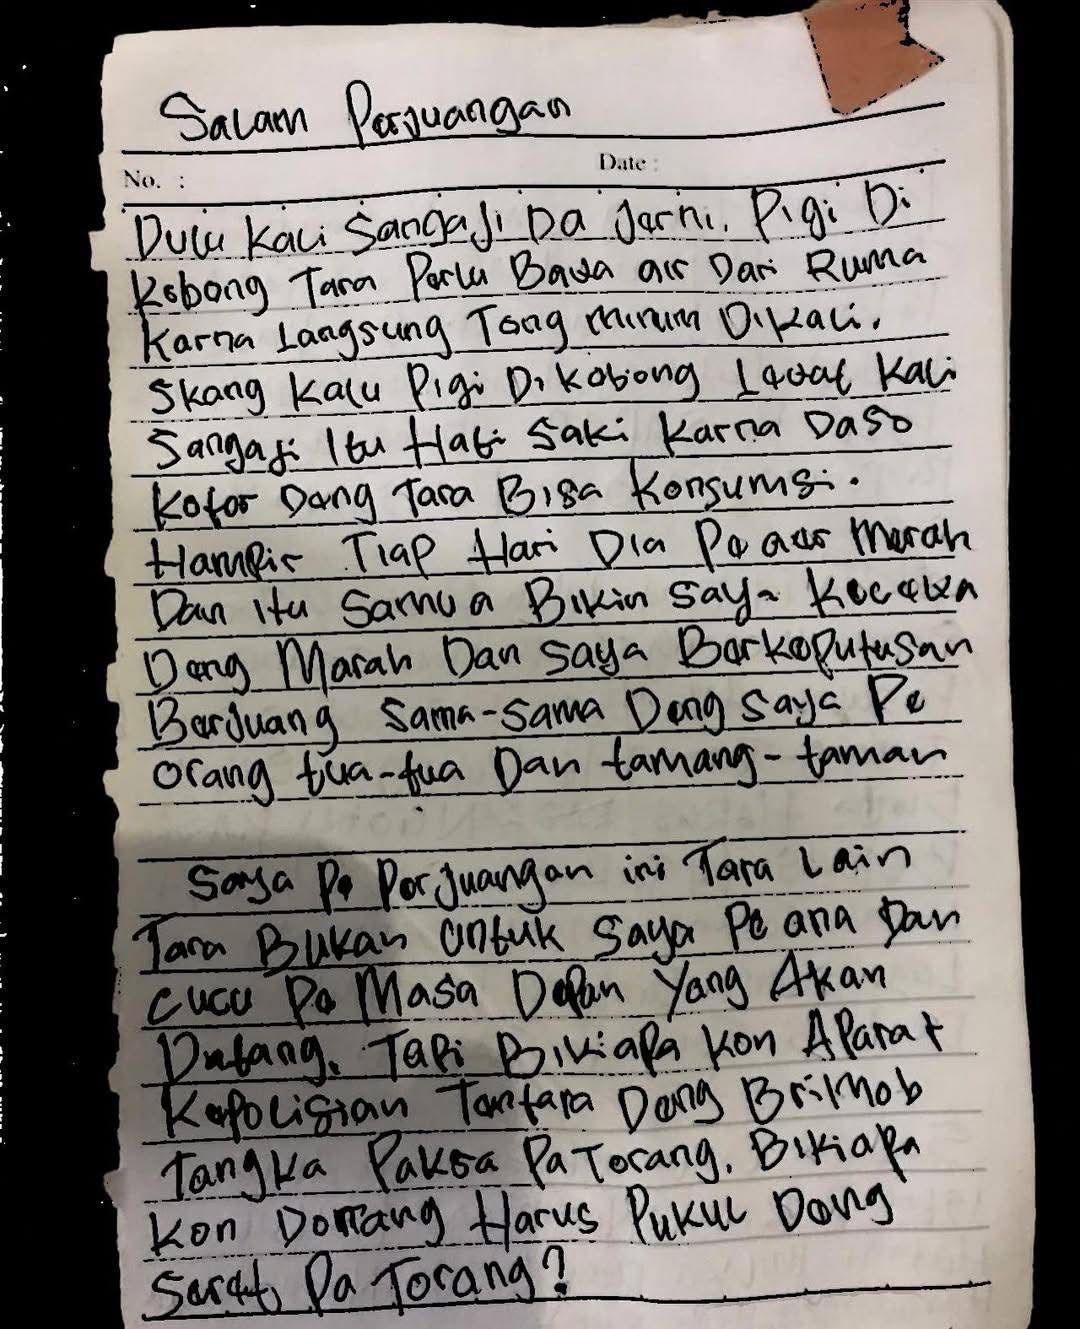 Salam Perjuangan
No. :
Date :
Dulu Kali Sangaji Da Jarni. Pigi Di
Kebong Tara Perlu Bawa air Dari Ruma
Karna Langsung Tong minum Dikali.
Skang Kalu Pigi Di kobong Lewat Kali
Sangaji Itu Hati Saki Karna Daso
Kotor Deng Tara Bisa Konsumsi.
Hampir Tiap Hari Dia Pe aer Merah
Dan itu Samua Bikin saya Kecewa
Deng Marah Dan saya Berkeputusan
Berjuang Sama-sama Deng saya Pe
orang tua-tua Dan tamang-taman
Saya Pe Perjuangan ini Tara Lain
Tara Bukan Untuk Saya Pe ana Dan
Cucu Pe Masa Depan Yang Akan
Datang. Tapi Bikiapa kon Aparat
Kepolisian Tentara Deng Brimob
Tangka Paksa Pa Torang. Bikiapa
Kon Dorang Harus Pukul Deng
Seret Pa Torang?